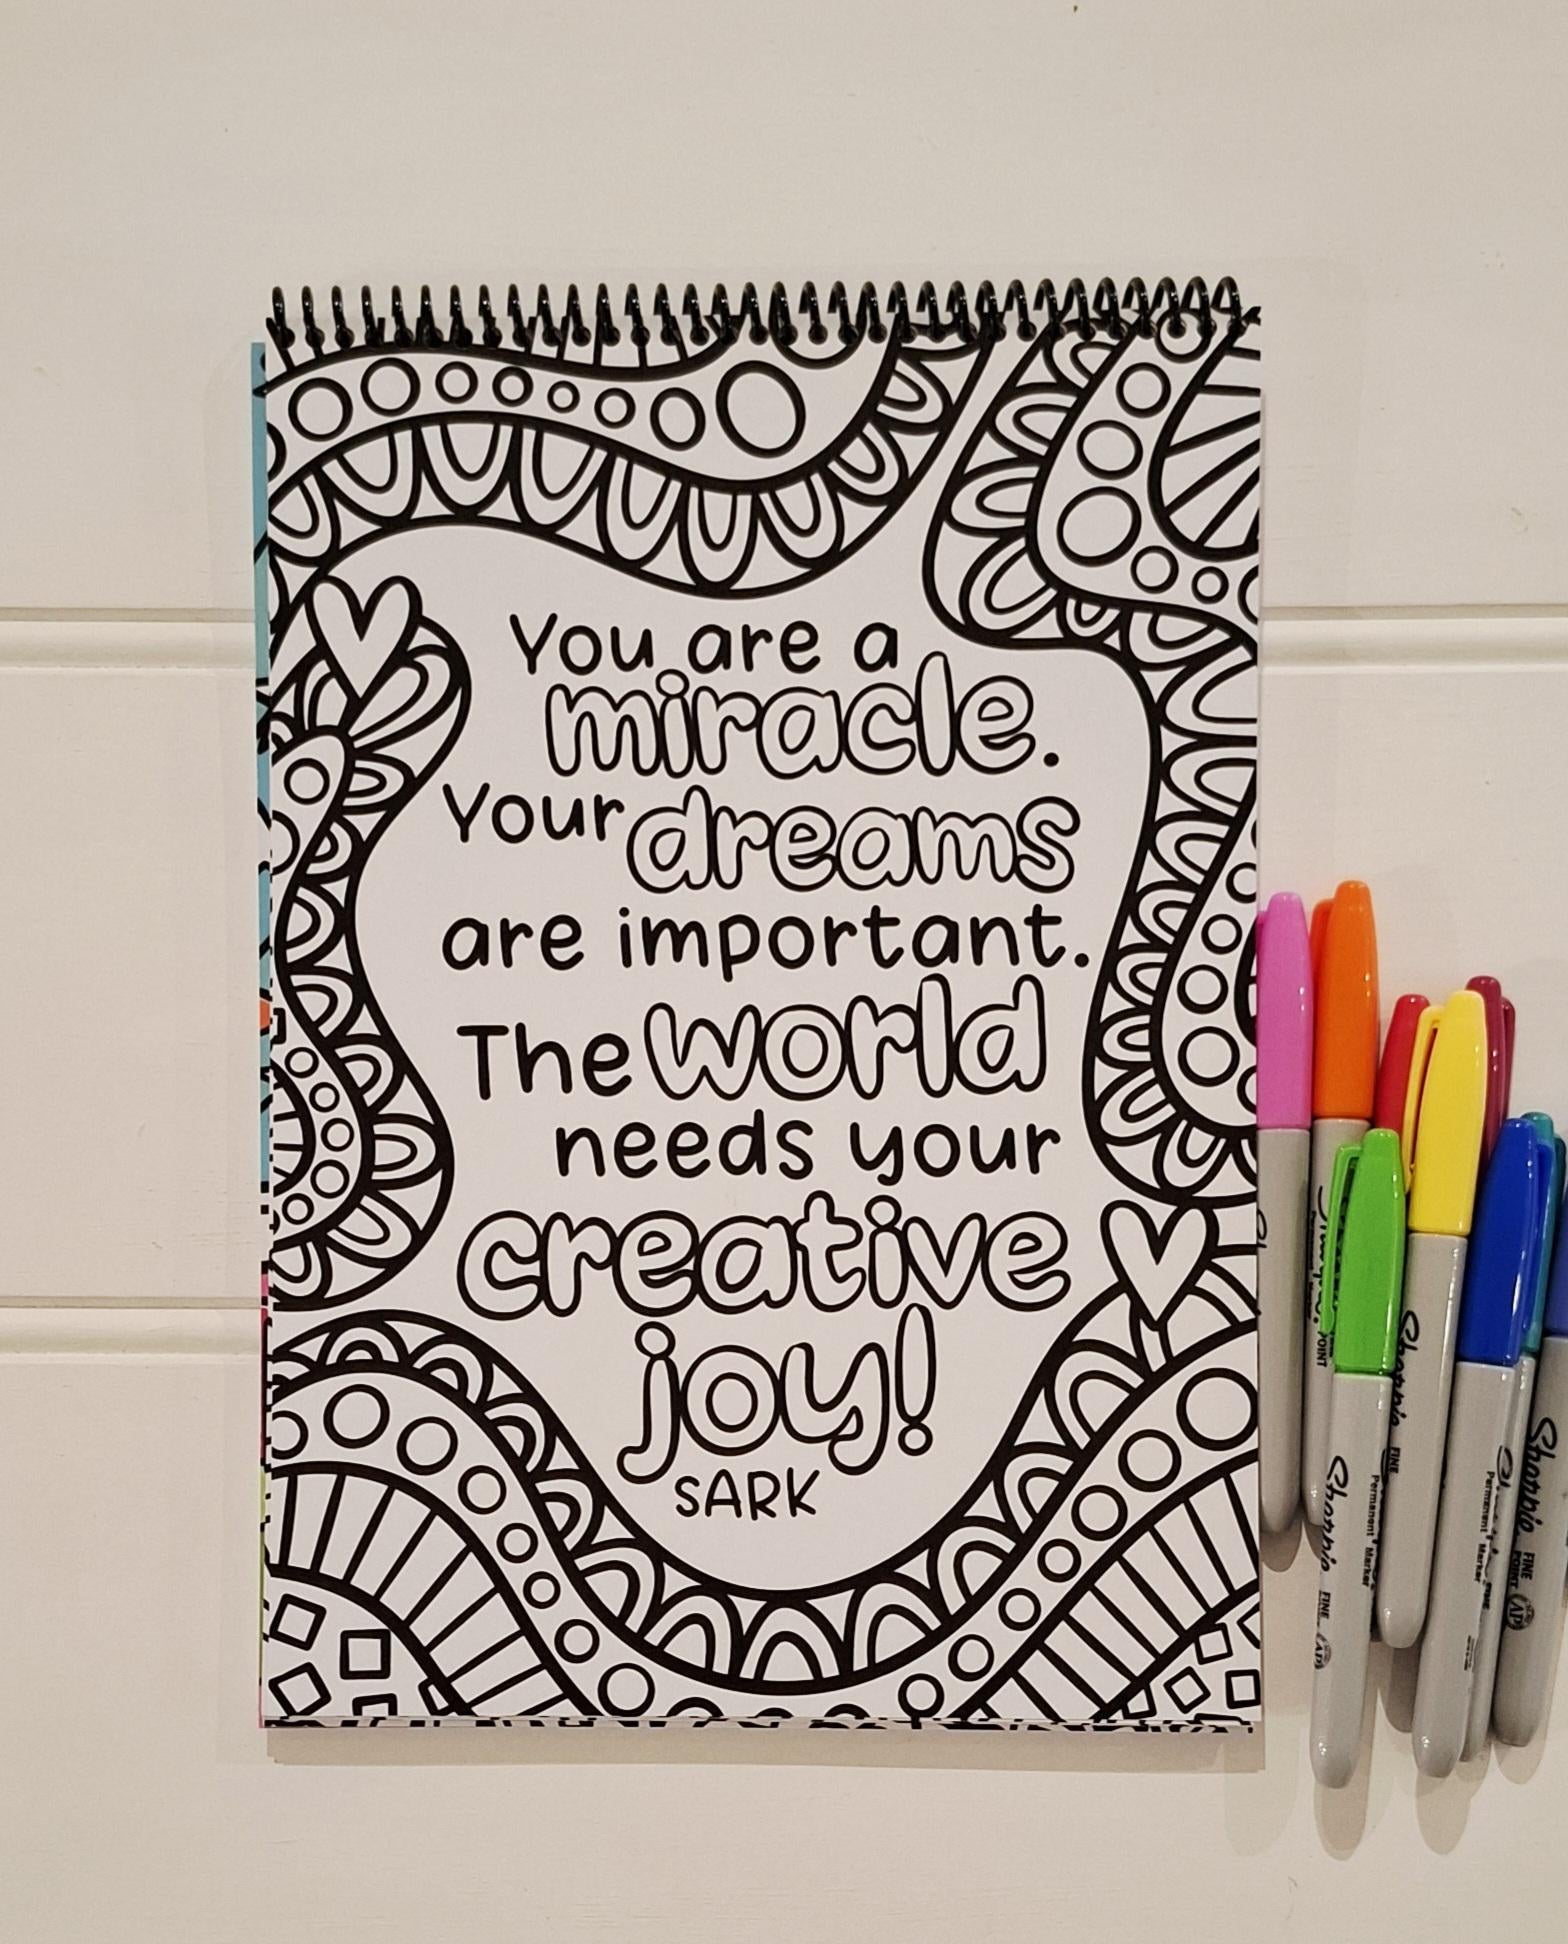 You are a
miracle.
Your dreams
are important.
The world
needs your
creative
joy!
SARK
Sharpie
FINE
POINT
Permanent Marker
FINE
Sharpie
FINE
Permanent Marker
Sharpie
FINE
POINT
AP